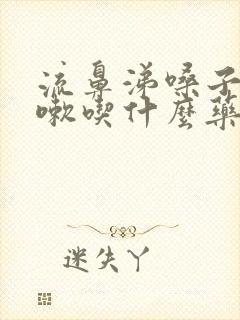 流鼻涕嗓子
嗽喫什麼藥
迷失丫